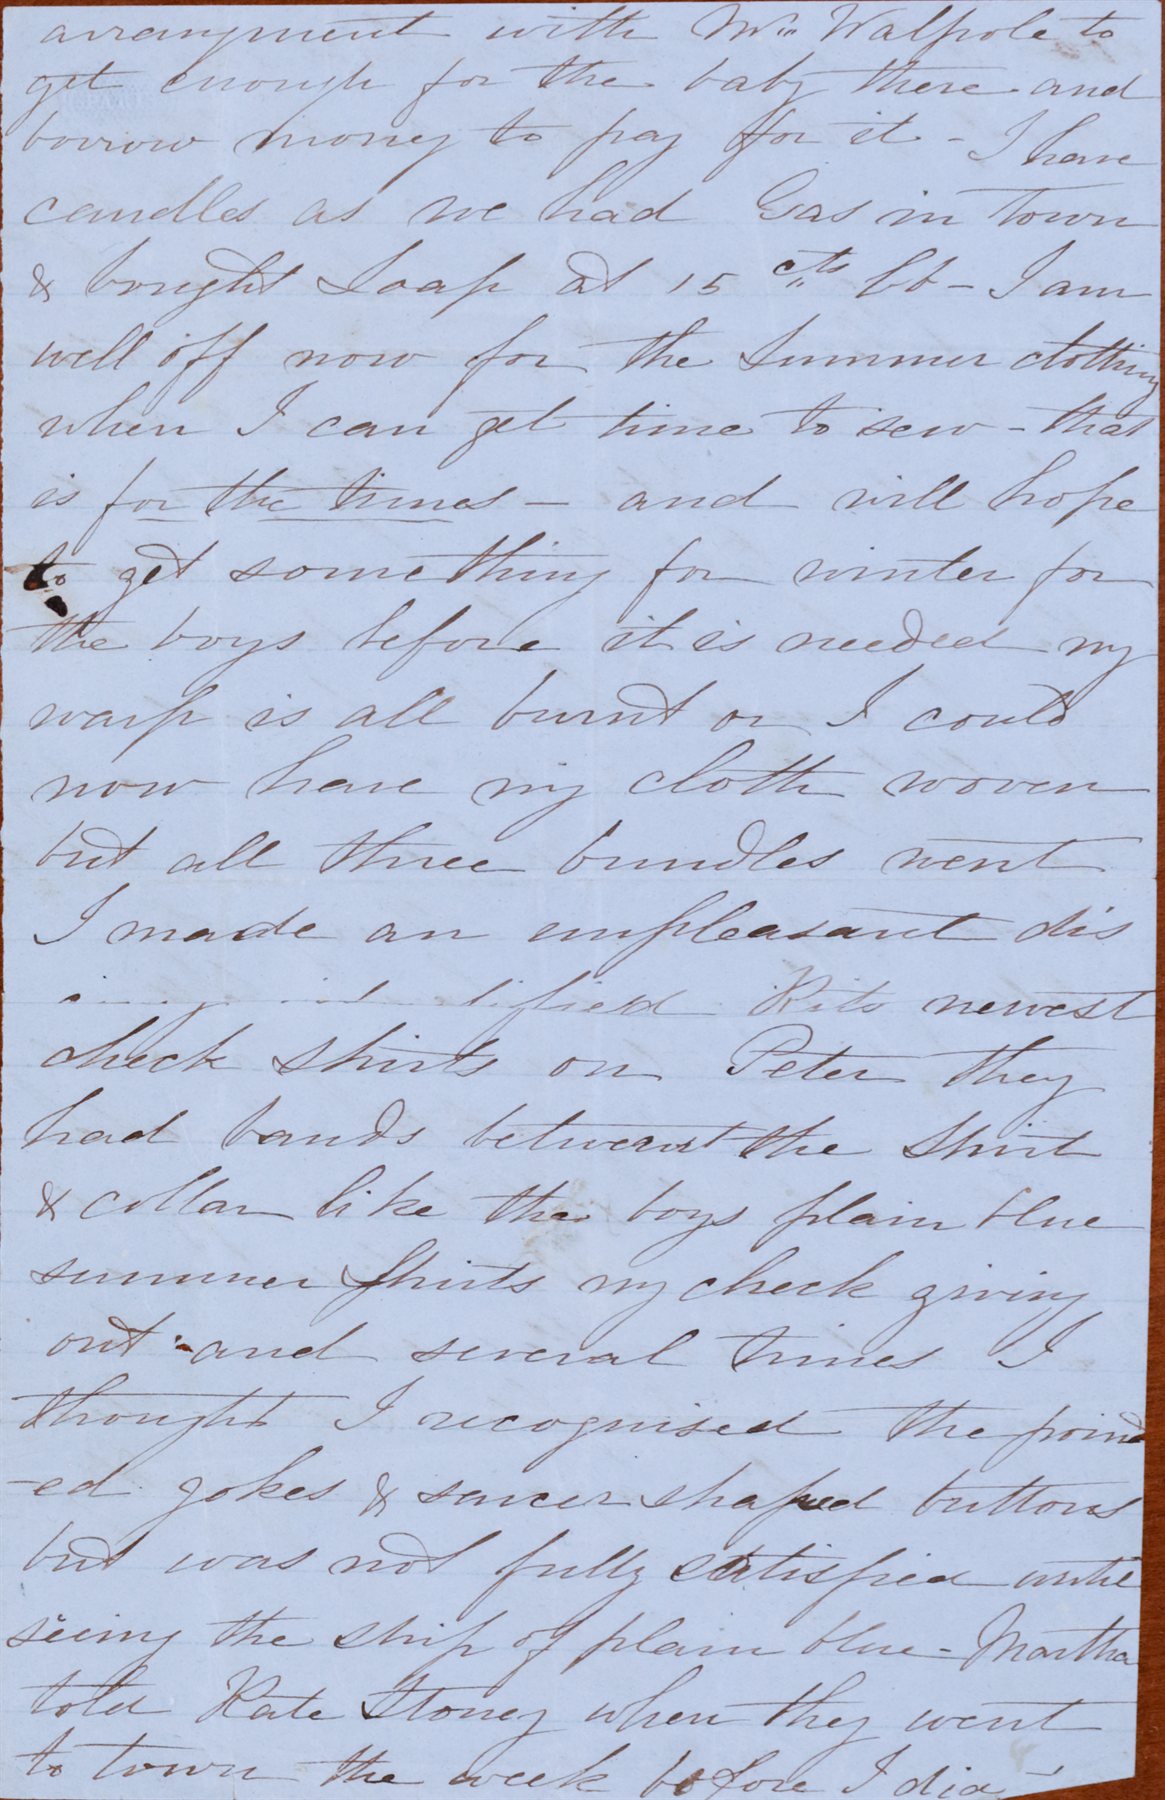 arrangment with Mr. Walpole to
get enough for the baby there and
borrow money to pay for it - I have
candles as we had Gas in Town
& bought Soap at 15 cts lb - I am
well off now for the Summer clothing
when I can get time to sew - that
is for the times - and will hope
to get something for winter for
the boys before it is needed my
warp is all burnt or I could
now have my cloth woven
but all three bundles went
I made an unpleasant dis
newest
check shirts on Peter they
had bands between the Shirt
& collar like the boys plain blue
summer Shirts my check giving
out and several times I
thought I recognised the point
-ed yokes & saucer shaped buttons
but was not fully satisfied until
seeing the strip of plain blue - Martha
told Kate Stoney when they went
to town the week before I did -